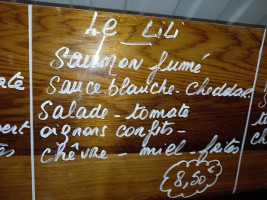 LE LiLi
Saumon fumé
ate Sauce blanche - cheddar
Salade - tomate
oignons confits -
chèvre - miel - frites
8,50